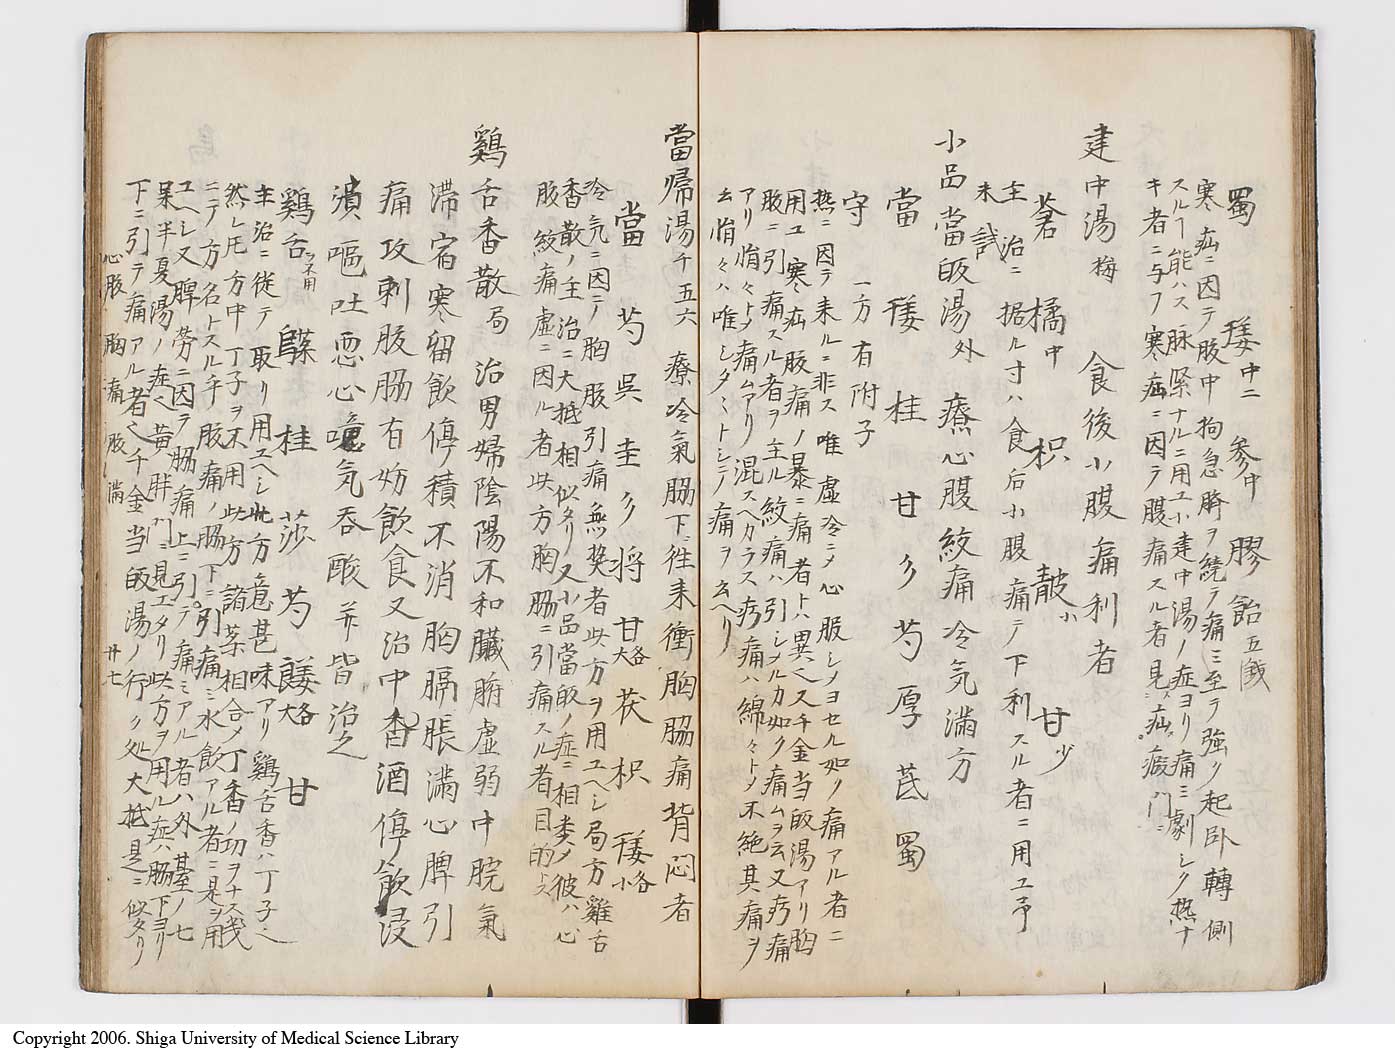 蜀 㨨中二 參中 膠飴五戔
寒疝ニ因テ腹中拘急臍ヲ繞テ痛ミ至テ強ク起臥轉側
スルヿ能ハス脉緊ナルニ用ユ小建中湯ノ症ヨリ痛ミ劇シク熱ナ
キ者ニ与フ寒疝ニ因テ腹痛スル者見疝瘕門ニ
建中湯梅 食後小腹痛利者
蒼 橘中 枳 皷小 甘少
主治ニ据ル寸ハ食后小腹痛テ下利スル者ニ用ユ予
未試
小品當皈湯外 療心腹絞痛冷気滿方
當 㨨 桂 甘 彡 芍 厚 茋 蜀
守 一方有附子
熱ニ因テ来ルニ非ス唯虚冷ニメ心腹シメヨセル如ノ痛アル者ニ
用ユ寒疝腹痛ノ暴ニ痛者トハ異ヘス千金当皈湯アリ胸
腹ニ引痛スル者ヲ主ル絞痛ハ引シメルカ如ク痛ムヲ云又㽲痛
アリ㽲々トメ痛ムアリ混スヘカラス㽲痛ハ綿々トメ不絶其痛ヲ
云㽲々ハ唯シタミトシテ痛ヲ云ヘリ
當帰湯千五六 療冷氣脇下ニ徃来衝胸脇痛背悶者
當 芍 呉 圭 彡 将 甘各大 茯 枳 㨨各小
冷気ニ因テ胸腹引痛無㷔者此方ヲ用ユヘシ局方雞舌
香散ノ主治ニ大抵相似タリ又小品當皈ノ症ニ相类メ彼ハ心
腹絞痛虚ニ因ル者此方胸脇ニ引痛スル者目的トス
鷄舌香散局 治男婦陰陽不和臟腑虚弱中脘氣
滞宿寒留飲停積不消胸膈脹滿心脾引
痛攻刺腹脇有妨飲食又治中香酒停飲浸
漬嘔吐悪心噫気呑酸并皆治之
鷄舌ツネ用 䮗 桂 莎 芍 䭃各大 甘
主治ニ従テ取リ用ユヘシ此方意甚味アリ鷄舌香ハ丁子也
然レ𪜈方中丁子ヲ不用此方諸薬相合メ丁香ノ功ヲナス哉
ニテ方名トスル乎腹痛ノ脇下ニ引痛ミ水飲アル者ニ是ヲ用
ユヘシ又脾労ニ因テ脇痛上ニ引テ痛ミアル者ハ外臺ノ七
氣半夏湯ノ症也黄胖門ニ見エタリ此方ヲ用ル症ハ脇下ヨリ
下ニ引テ痛アル者也千金当皈湯ノ行ク処大抵是ニ似タリ
心腹 胸痛 腹滿 廿七
Copyright 2006. Shiga University of Medical Science Library